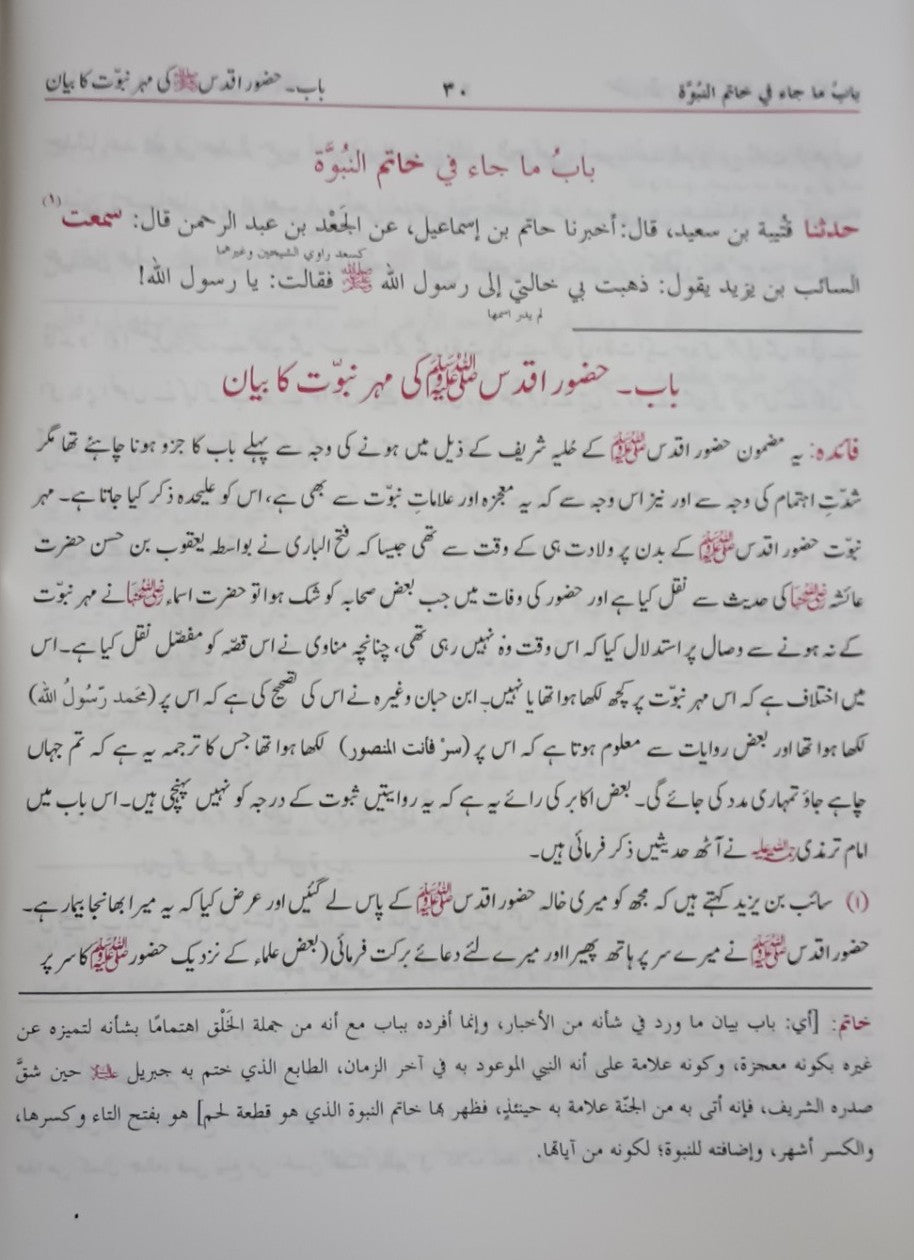 بابُ ما جاء في خاتم النُبُوَّة ۳۰ باب۔ حضور اقدس ﷺ کی مہر نبوّت کا بیان
بابُ ما جاء في خاتم النُبُوَّة
حدثنا قُتيبة بن سعيد، قال: أخبرنا حاتم بن إسماعيل، عن الجَعْد بن عبد الرحمن قال: سمعت (١)
كسعد راوي الشيخين وغيرهما
السائب بن يزيد يقول: ذهبت بي خالتي إلى رسول الله ﷺ فقالت: يا رسول الله!
لم يدر اسمها
باب۔ حضور اقدس ﷺ کی مہر نبوّت کا بیان
فائدہ: یہ مضمون حضور اقدس ﷺ کے حُلیہ شریف کے ذیل میں ہونے کی وجہ سے پہلے باب کا جزو ہونا چاہئے تھا مگر
شدّتِ اہتمام کی وجہ سے اور نیز اس وجہ سے کہ یہ معجزہ اور علاماتِ نبوّت سے بھی ہے، اس کو علیحدہ ذکر کیا جاتا ہے۔ مہر
نبوّت حضور اقدس ﷺ کے بدن پر ولادت ہی کے وقت سے تھی جیسا کہ فتح الباری نے بواسطہ یعقوب بن حسن حضرت
عائشہ رضی اللہ عنہا کی حدیث سے نقل کیا ہے اور حضور کی وفات میں جب بعض صحابہ کو شک ہوا تو حضرت اسماء رضی اللہ عنہا نے مہر نبوّت
کے نہ ہونے سے وصال پر استدلال کیا کہ اس وقت وہ نہیں رہی تھی، چنانچہ مناوی نے اس قصّہ کو مفصّل نقل کیا ہے۔ اس
میں اختلاف ہے کہ اس مہر نبوّت پر کچھ لکھا ہوا تھا یا نہیں۔ ابن حبان وغیرہ نے اس کی تصحیح کی ہے کہ اس پر (محمد رّسُولُ الله)
لکھا ہوا تھا اور بعض روایات سے معلوم ہوتا ہے کہ اس پر (سرْ فأنت المنصور) لکھا ہوا تھا جس کا ترجمہ یہ ہے کہ تم جہاں
چاہے جاؤ تمہاری مدد کی جائے گی۔ بعض اکابر کی رائے یہ ہے کہ یہ روایتیں ثبوت کے درجہ کو نہیں پہنچی ہیں۔ اس باب میں
امام ترمذی رحمۃ اللہ علیہ نے آٹھ حدیثیں ذکر فرمائی ہیں۔
(۱) سائب بن یزید کہتے ہیں کہ مجھ کو میری خالہ حضور اقدس ﷺ کے پاس لے گئیں اور عرض کیا کہ یہ میرا بھانجا بیمار ہے۔
حضور اقدس ﷺ نے میرے سر پر ہاتھ پھیرا اور میرے لئے دعائے برکت فرمائی (بعض علماء کے نزدیک حضور ﷺ کا سر پر
خاتم: [أي: باب بيان ما ورد في شأنه من الأخبار، وإنما أفرده بباب مع أنه من جملة الخَلْق اهتمامًا بشأنه لتميزه عن
غيره بكونه معجزة، وكونه علامة على أنه النبي الموعود به في آخر الزمان، الطابع الذي ختم به جبريل عليه السلام حين شقَّ
صدره الشريف، فإنه أتى به من الجنّة علامة به حينئذٍ، فظهر بها خاتم النبوة الذي هو قطعة لحم] هو بفتح التاء وكسرها،
والكسر أشهر، وإضافته للنبوة؛ لكونه من آياتها.